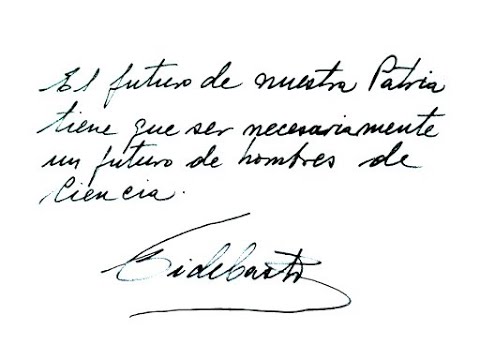 El futuro de nuestra Patria
tiene que ser necesariamente
un futuro de hombres de
Ciencia.
Fidel Castro